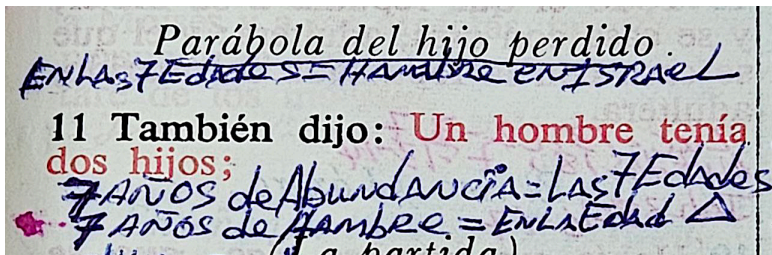 Parábola del hijo perdido.
EN LAS 7 Edades = Hambre en ISRAEL
11 También dijo: Un hombre tenía
dos hijos;
7 AÑOS de Abundancia = LAS 7 Edades
7 AÑOS de Hambre = EN LA Edad △
(La partida)